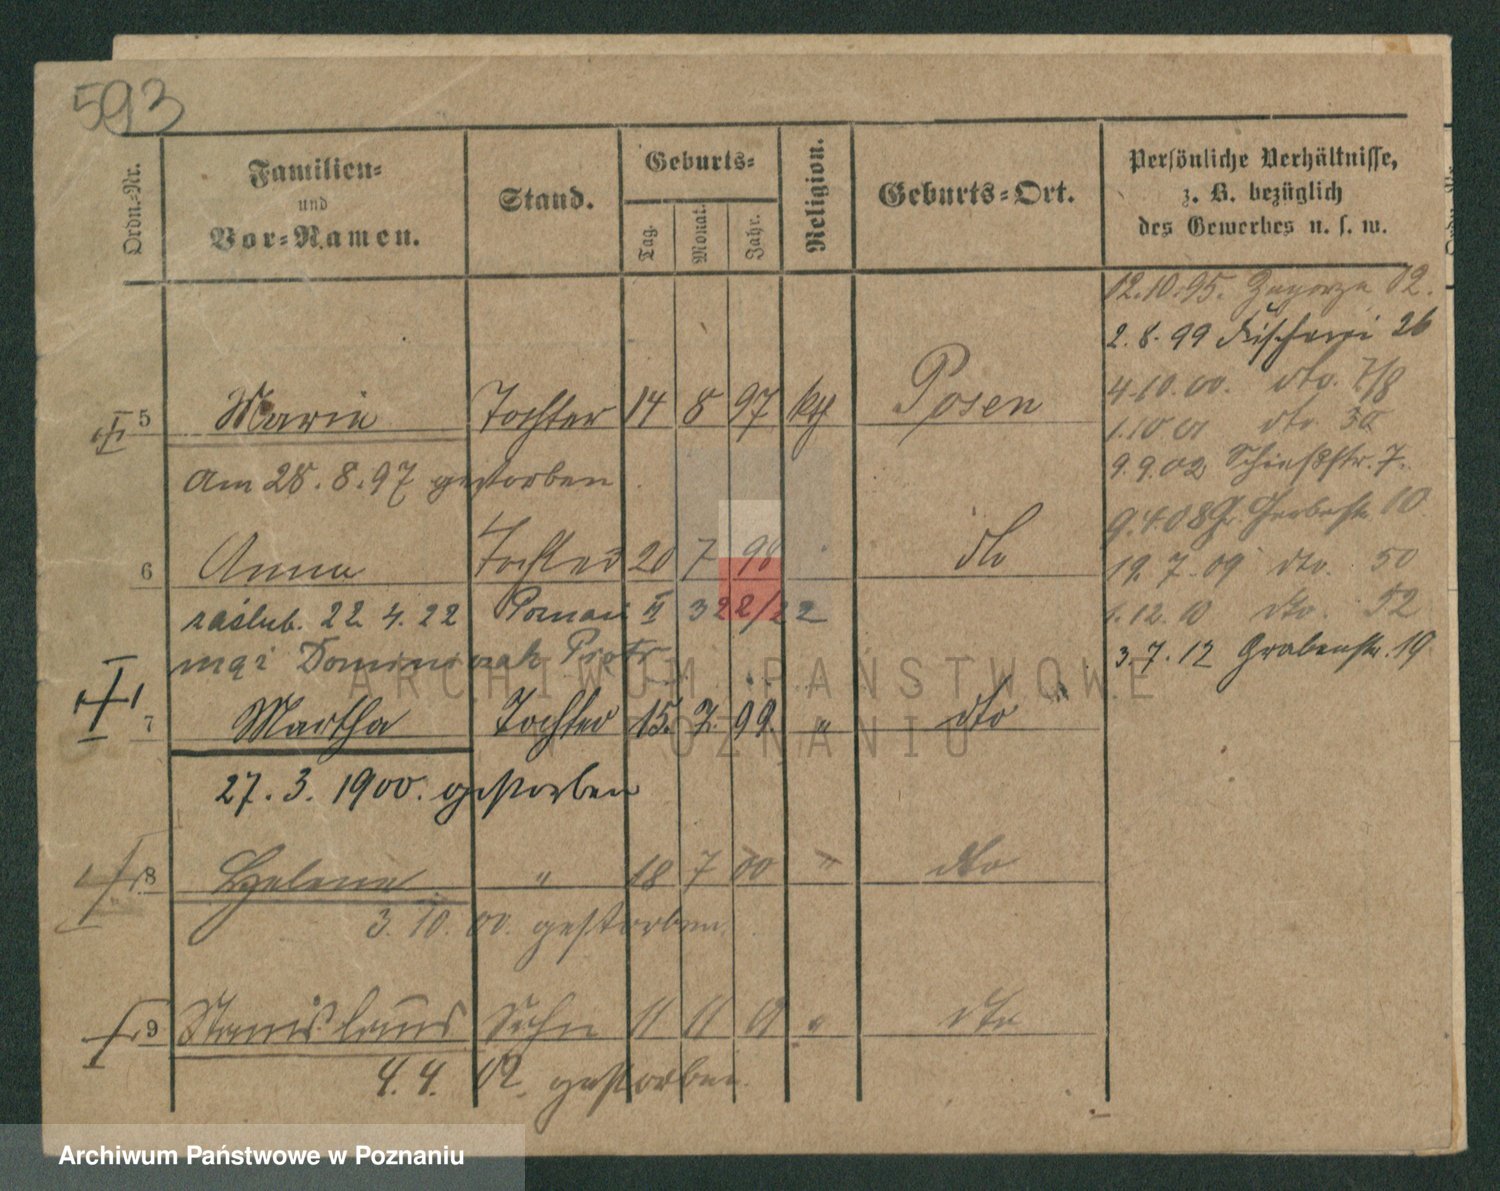 593
Ordn.-Nr.
Familien-
und
Vor-Namen.
Stand.
Geburts-
Tag.
Monat.
Jahr.
Religion.
Geburts-Ort.
Persönliche Verhältnisse,
z. B. bezüglich
des Gewerbes u. s. w.
12.10.95. Zagorze 12.
2.8.99 Fischerei 26
4.10.00. dto. 7/8
1.10 01 dto 30
9.9.02 Schießstr. 7.
9.4.08 Gr. Gerberstr. 10
19.7.09 dto. 50
1.12.10 dto. 52
3.7.12 Grabenstr. 19
5 Marie Tochter 14 8 97 kth Posen
am 28.8.97 gestorben
6 Anna Tochter 20 7 98 dto
zaślub. 22 4.22 Poznań II 322/22
mąż Dominiczak Piotr
7 Martha Tochter 15. 7. 99. " dto
27.3.1900. gestorben
8 Helene " 18 7 00 " dto
3.10.00. gestorben
9 Stanislaus Sohn 11 11 01 " dto
4.4.02. gestorben
ARCHIWUM PAŃSTWOWE
W POZNANIU
Archiwum Państwowe w Poznaniu